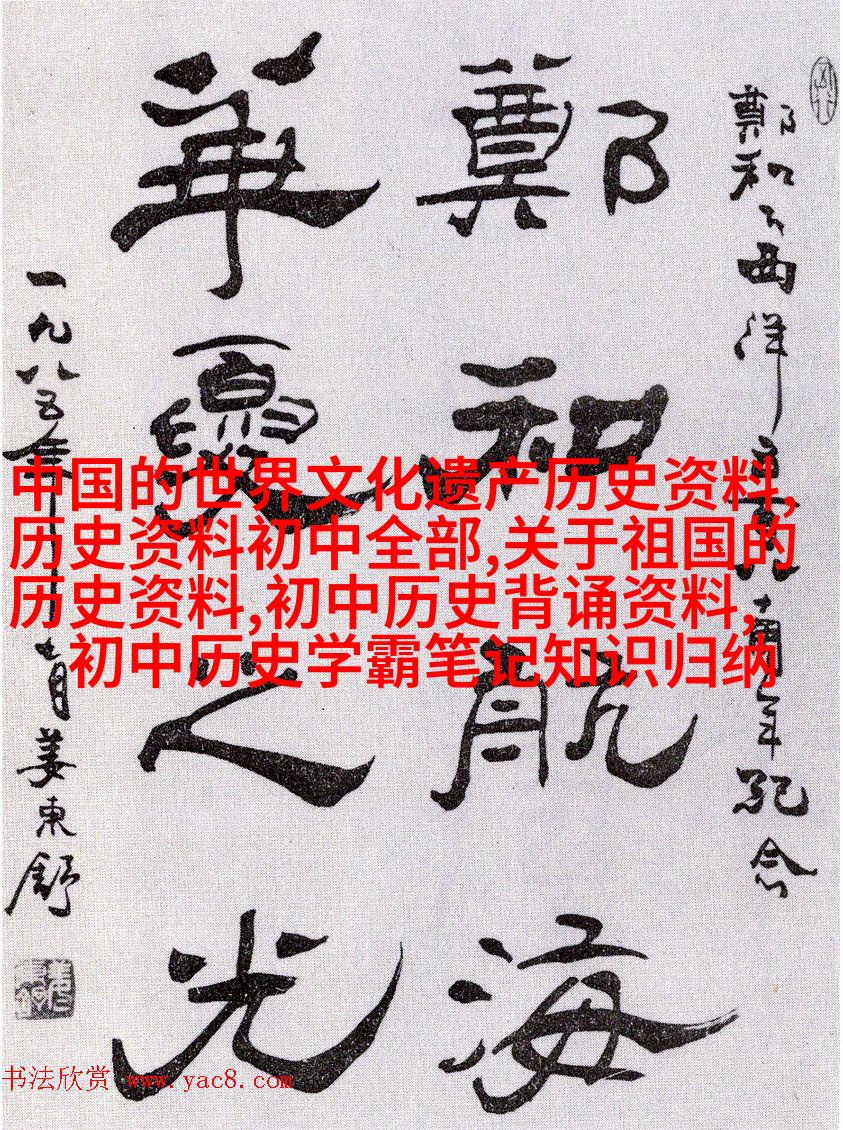 鄭和下西洋五百八十周年紀念
鄭和航海
華夏之光
一九八五年十一月姜東舒
中国的世界文化遗产历史资料,
历史资料初中全部,关于祖国的
历史资料,初中历史背诵资料,
初中历史学霸笔记知识归纳
书法欣赏 www.yac8.com